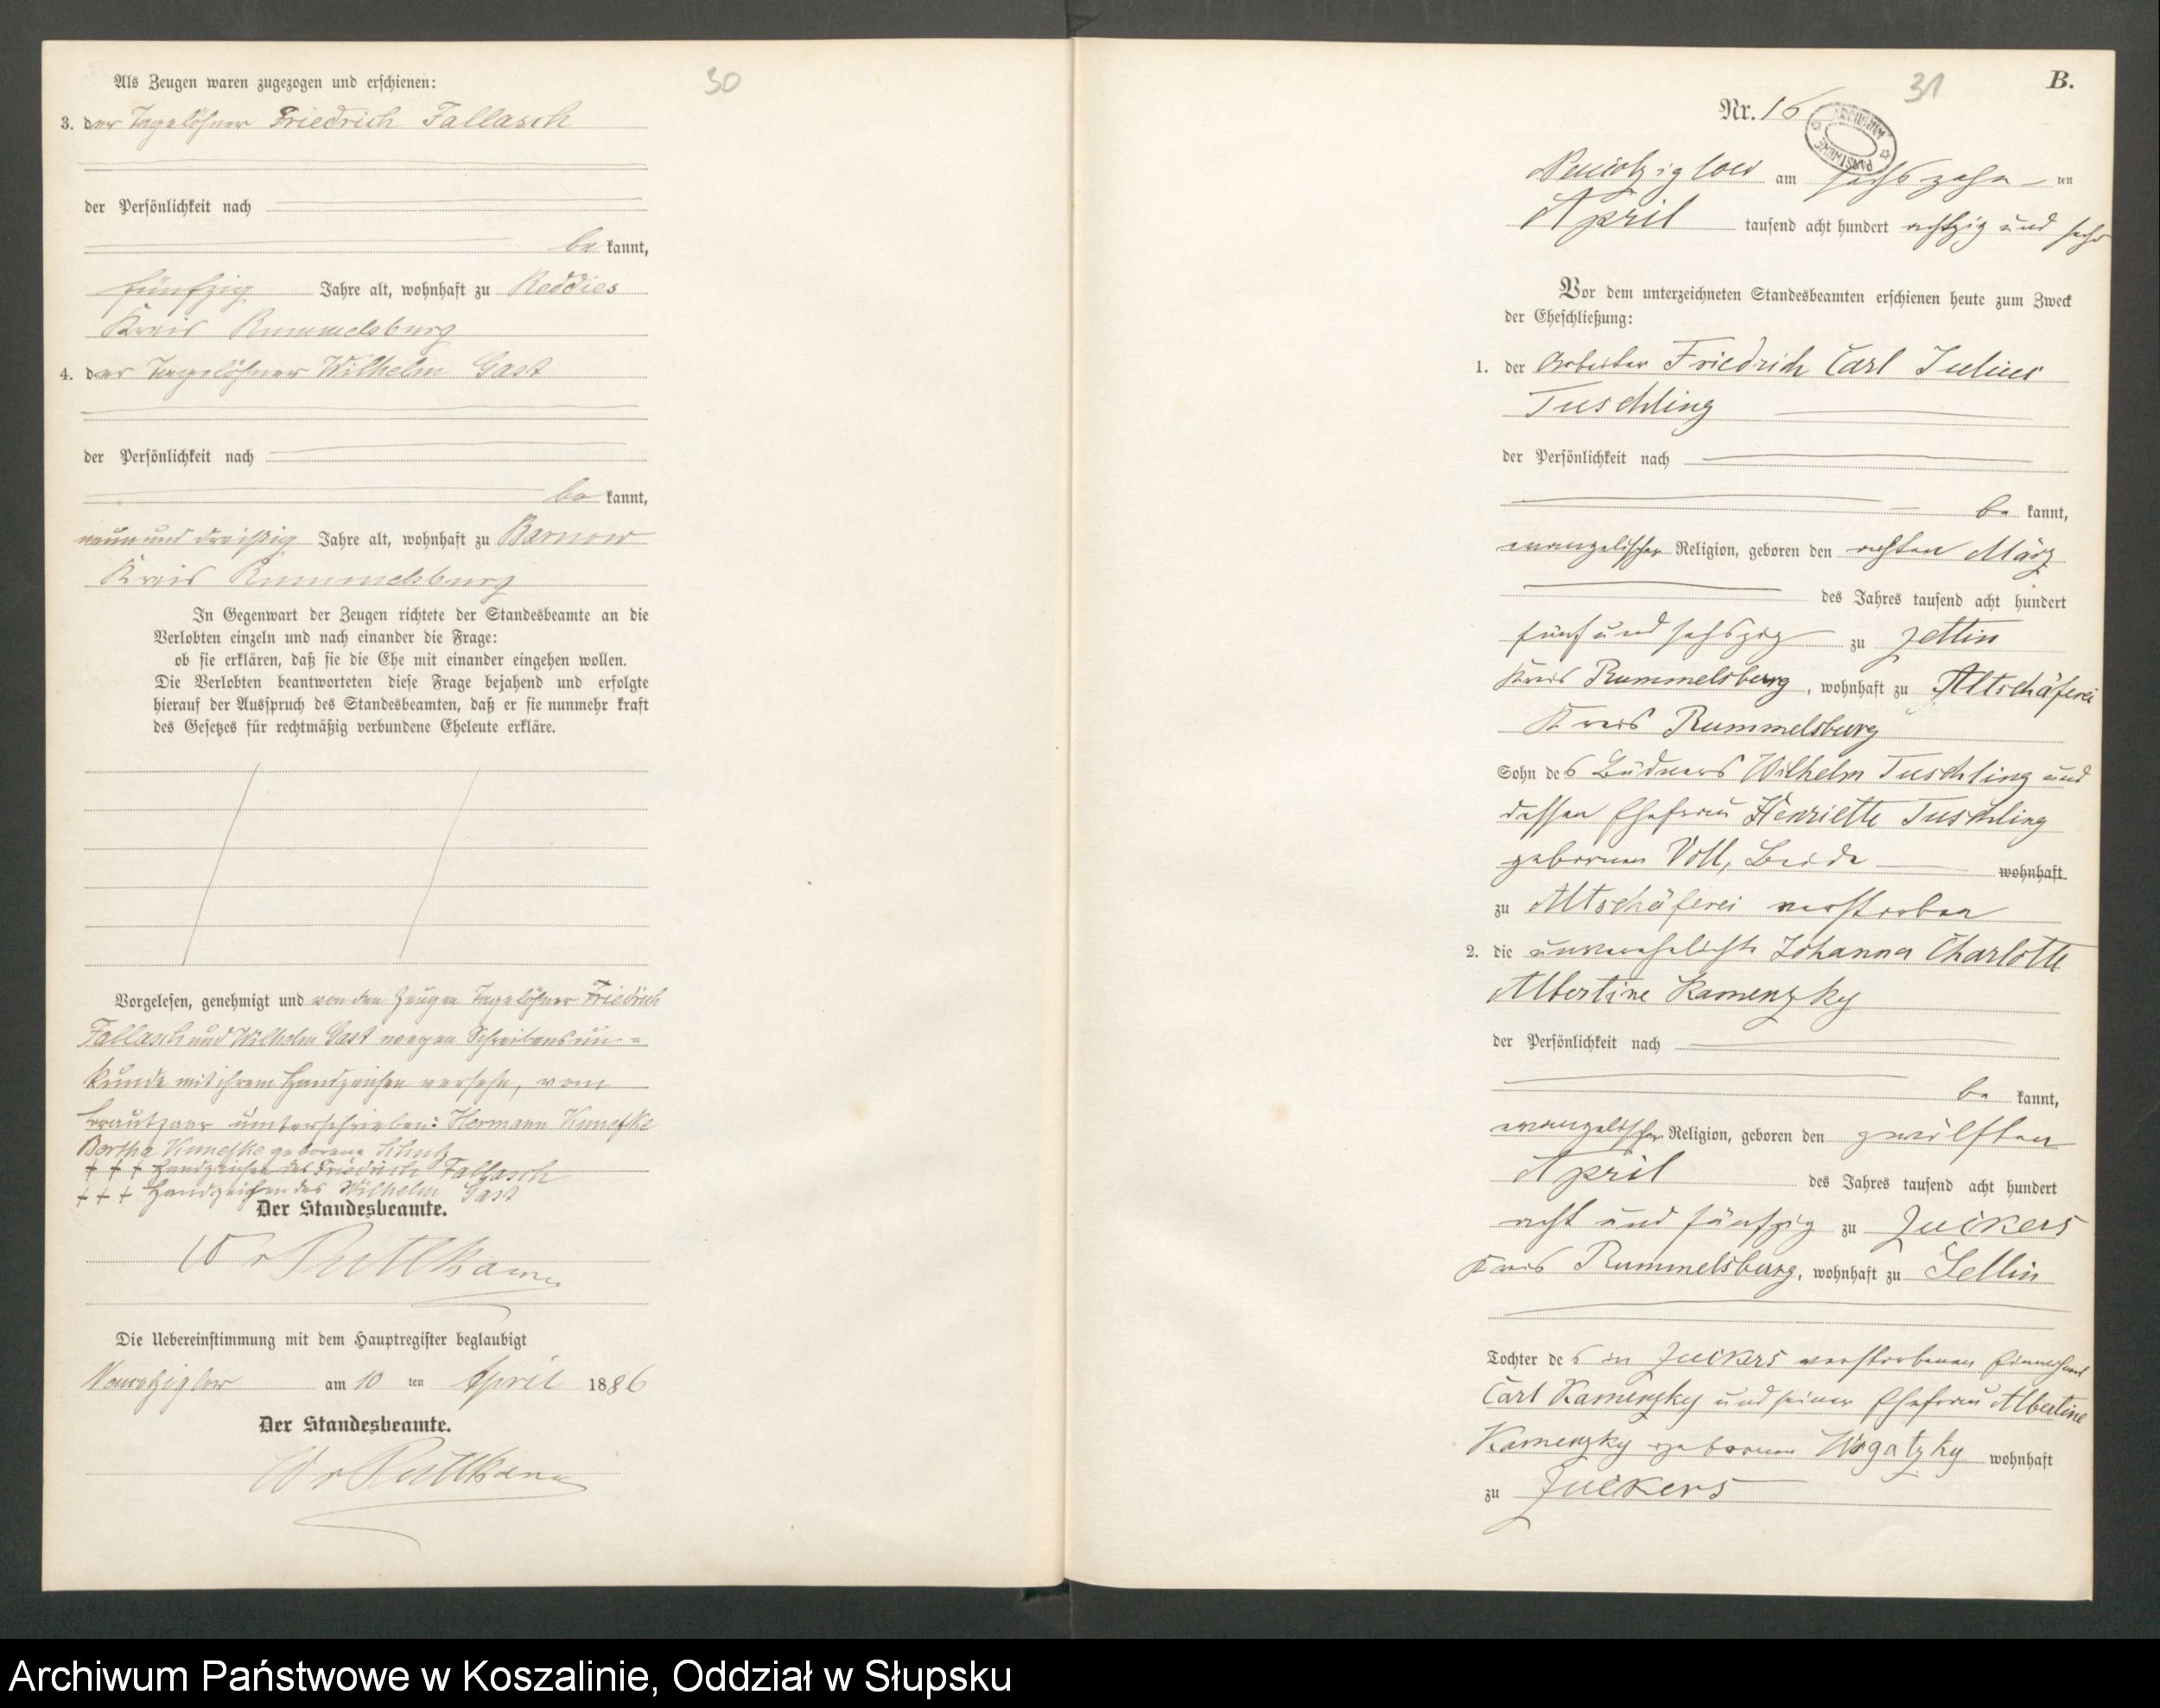 Als Zeugen waren zugezogen und erschienen:
30
3. der Tagelöhner Friedrich Fallasch
der Persönlichkeit nach
be kannt,
fünfzig Jahre alt, wohnhaft zu Reddies
Kreis Rummelsburg
4. der Tagelöhner Wilhelm Gast
der Persönlichkeit nach
be kannt,
neun und dreißig Jahre alt, wohnhaft zu Barnow
Kreis Rummelsburg
In Gegenwart der Zeugen richtete der Standesbeamte an die
Verlobten einzeln und nach einander die Frage:
ob sie erklären, daß sie die Ehe mit einander eingehen wollen.
Die Verlobten beantworteten diese Frage bejahend und erfolgte
hierauf der Ausspruch des Standesbeamten, daß er sie nunmehr kraft
des Gesetzes für rechtmäßig verbundene Eheleute erkläre.
Vorgelesen, genehmigt und von den Zeugen Tagelöhner Friedrich
Fallasch und Wilhelm Gast wegen Schreibensun=
kunde mit ihrem Handzeichen versehn, vom
Brautpaar unterschrieben: Hermann Kuneffke
Bertha Kuneffke geborene
+++ Handzeichen des Friedrich Fallasch
+++ Handzeichen des Wilhelm Gast
Der Standesbeamte.
W v Puttkamer
Die Uebereinstimmung mit dem Hauptregister beglaubigt
am 10 ten April 1886
Der Standesbeamte.
W v Puttkamer
31
B.
Nr. 16
ARCHIWUM PAŃSTWOWE
am sechszehn ten
April tausend acht hundert achtzig und sechs
Vor dem unterzeichneten Standesbeamten erschienen heute zum Zweck
der Eheschließung:
1. der Arbeiter Friedrich Carl Julius
Tuschling
der Persönlichkeit nach
be kannt,
evangelischer Religion, geboren den achten März
des Jahres tausend acht hundert
fünf und sechszig zu Zettin
Kreis Rummelsburg, wohnhaft zu Altschäferei
Kreis Rummelsburg
Sohn des Büdners Wilhelm Tuschling und
dessen Ehefrau Henriette Tuschling
geborenen Voll, Beide wohnhaft
zu Altschäferei verstorben
2. die unverehelichte Johanna Charlotte
Albertine Kamenzky
der Persönlichkeit nach
be kannt,
evangelischer Religion, geboren den zwölften
April des Jahres tausend acht hundert
acht und fünfzig zu Zuckers
Kreis Rummelsburg, wohnhaft zu Sellin
Tochter des in Zuckers verstorbenen
Carl Kamenzky und seiner Ehefrau Albertine
Kamenzky geborenen Wogatzky wohnhaft
zu Zuckers
Archiwum Państwowe w Koszalinie, Oddział w Słupsku